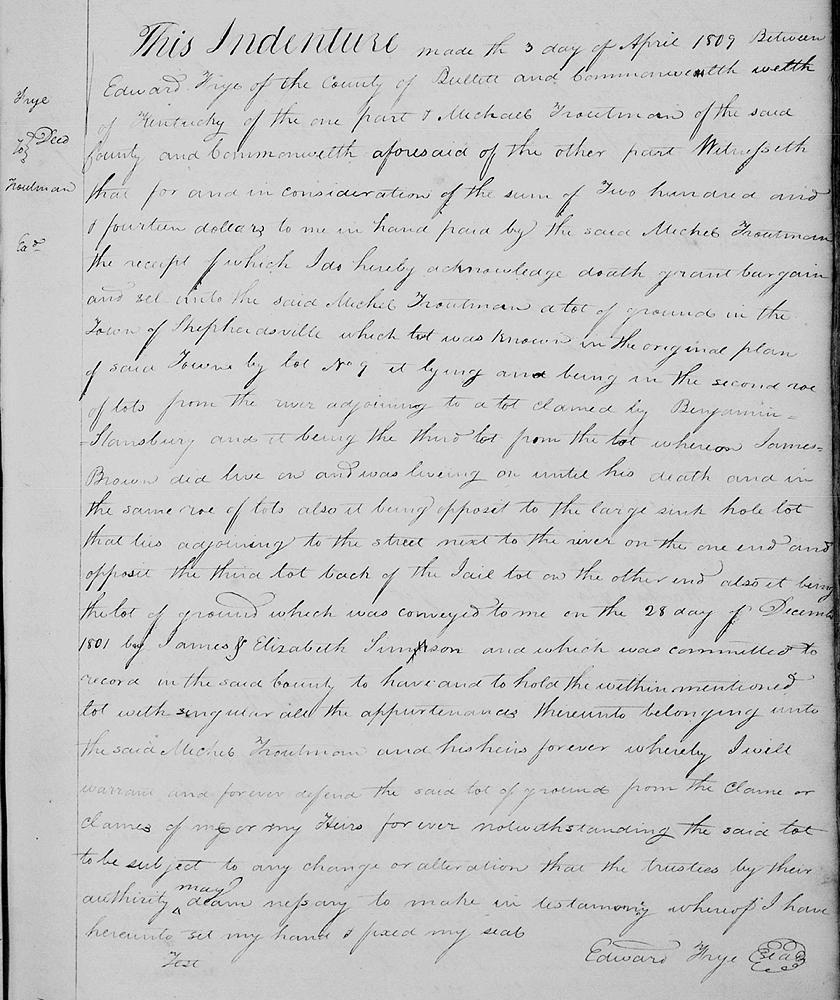 This Indenture made th 3 day of April 1809 Between
Edward Frye of the County of Bullett and Commonwealth welth
of Kentucky of the one part & Michael Troutman of the said
County and Commonwelth aforesaid of the other part Witnesseth
that for and in consideration of the sum of Two hundred and
& fourteen dollars to me in hand paid by the said Michel Troutman
the receipt of which I do hereby acknowledge doath grant bargain
and sel unto the said Michel Troutman a lot of ground in the
Town of Shephardsville which lot was known in the original plan
of said Towne by lot No 9 it lying and being in the second roe
of lots from the river adjoining to a lot claimed by Benjamin=
=Stansbury and it being the third lot from the lot whereon James=
Brown did live on and was liveing on until his death and in
the same roe of lots also it being opposit to the large sink hole lot
that lies adjoining to the street next to the river on the one end and
opposit the third lot back of the Jail lot on the other end also it being
the lot of ground which was conveyed to me on the 28 day of Decembe
1801 by James & Elizabeth Simpson and which was committed to
record in the said County to have and to hold the within mentioned
lot with singular all the appurtenances thereunto belonging unto
the said Michel Troutman and his heirs forever whereby I will
warrant and forever defend the said lot of ground from the Clame or
Clames of me or my Heirs for ever notwithstanding the said lot
to be subject to any change or alteration that the trustees by their
authirity may deam nessary to make in testamony whereof I have
hereunto set my hand & fixed my seal
Test
Edward Frye Seal
Frye
To Deed
Troutman
Exd